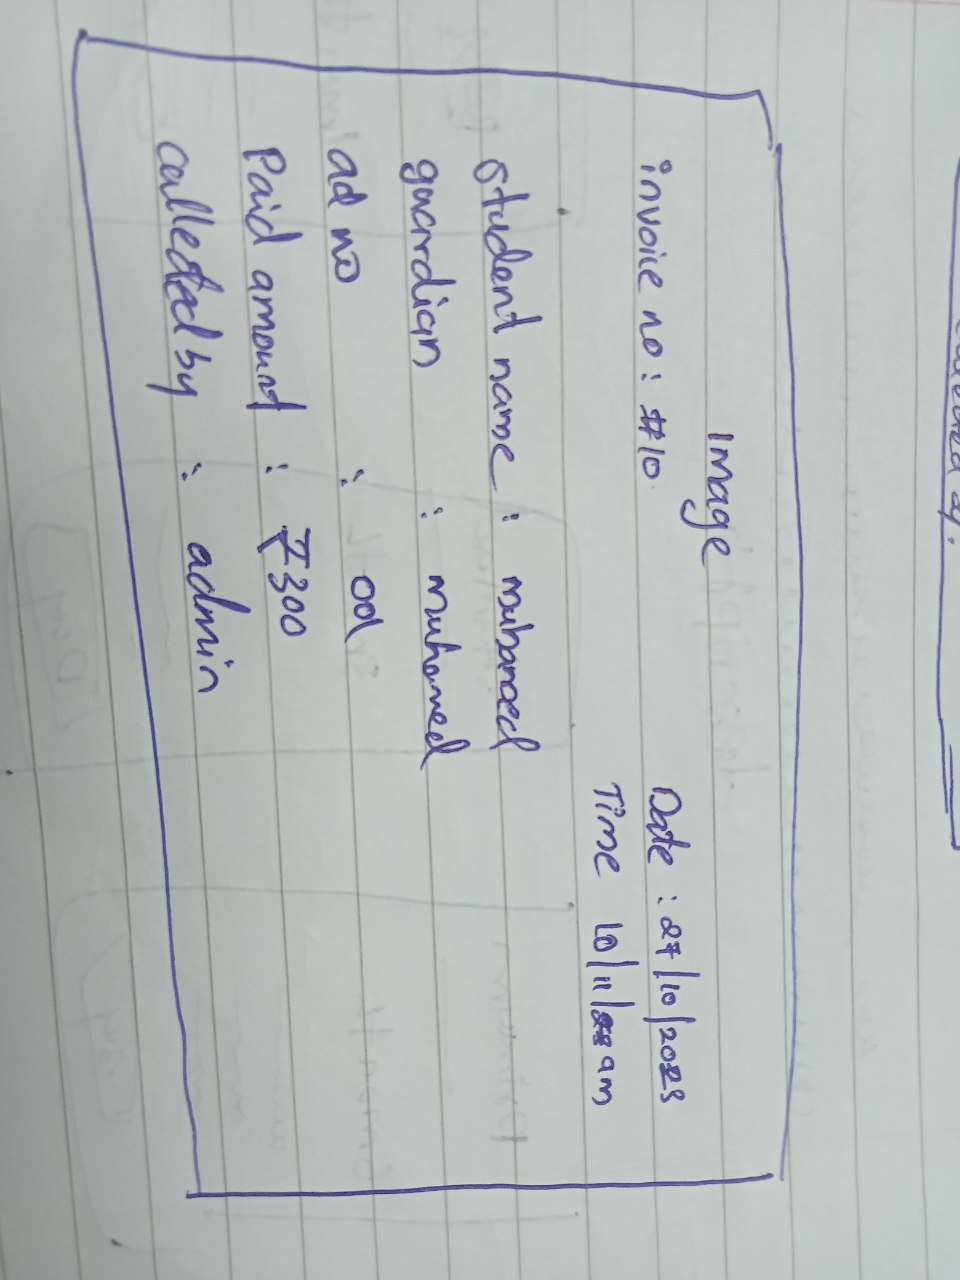 Image
invoice no : #10
Date : 27/10/2023
Time 10/11/ am
Student name : muhamed
guardian : muhamed
ad no : 001
Paid amount : ₹300
collected by : admin